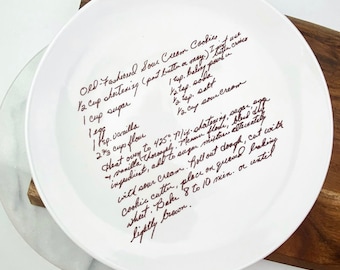 Old-Fashioned Sour Cream Cookies
½ cup shortening (part butter is easy) I just use
1 cup sugar
1 egg
1 tsp. vanilla
2⅔ cup flour
1 tsp. baking powder
½ tsp. soda
½ tsp. salt
½ cup sour cream
Heat oven to 425°. Mix shortening, sugar, egg
& vanilla thoroughly. blend dry
ingredients, add to sugar mixture alternately
with sour cream. Roll out dough, cut with
cookie cutter, place on greased baking
sheet. Bake 8 to 10 min. or until
lightly brown.